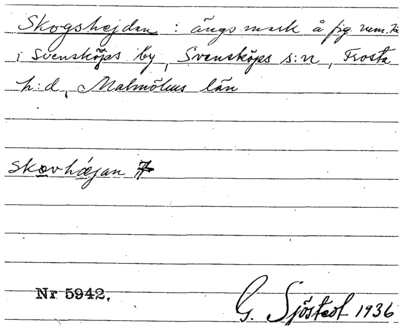 Skogshejdan : ängsmark å fig. num.
i Svensköps by, Svensköps s:n, Frosta
h:d, Malmöhus län
skovhæjan
Nr 5942.
G. Sjöstedt 1936